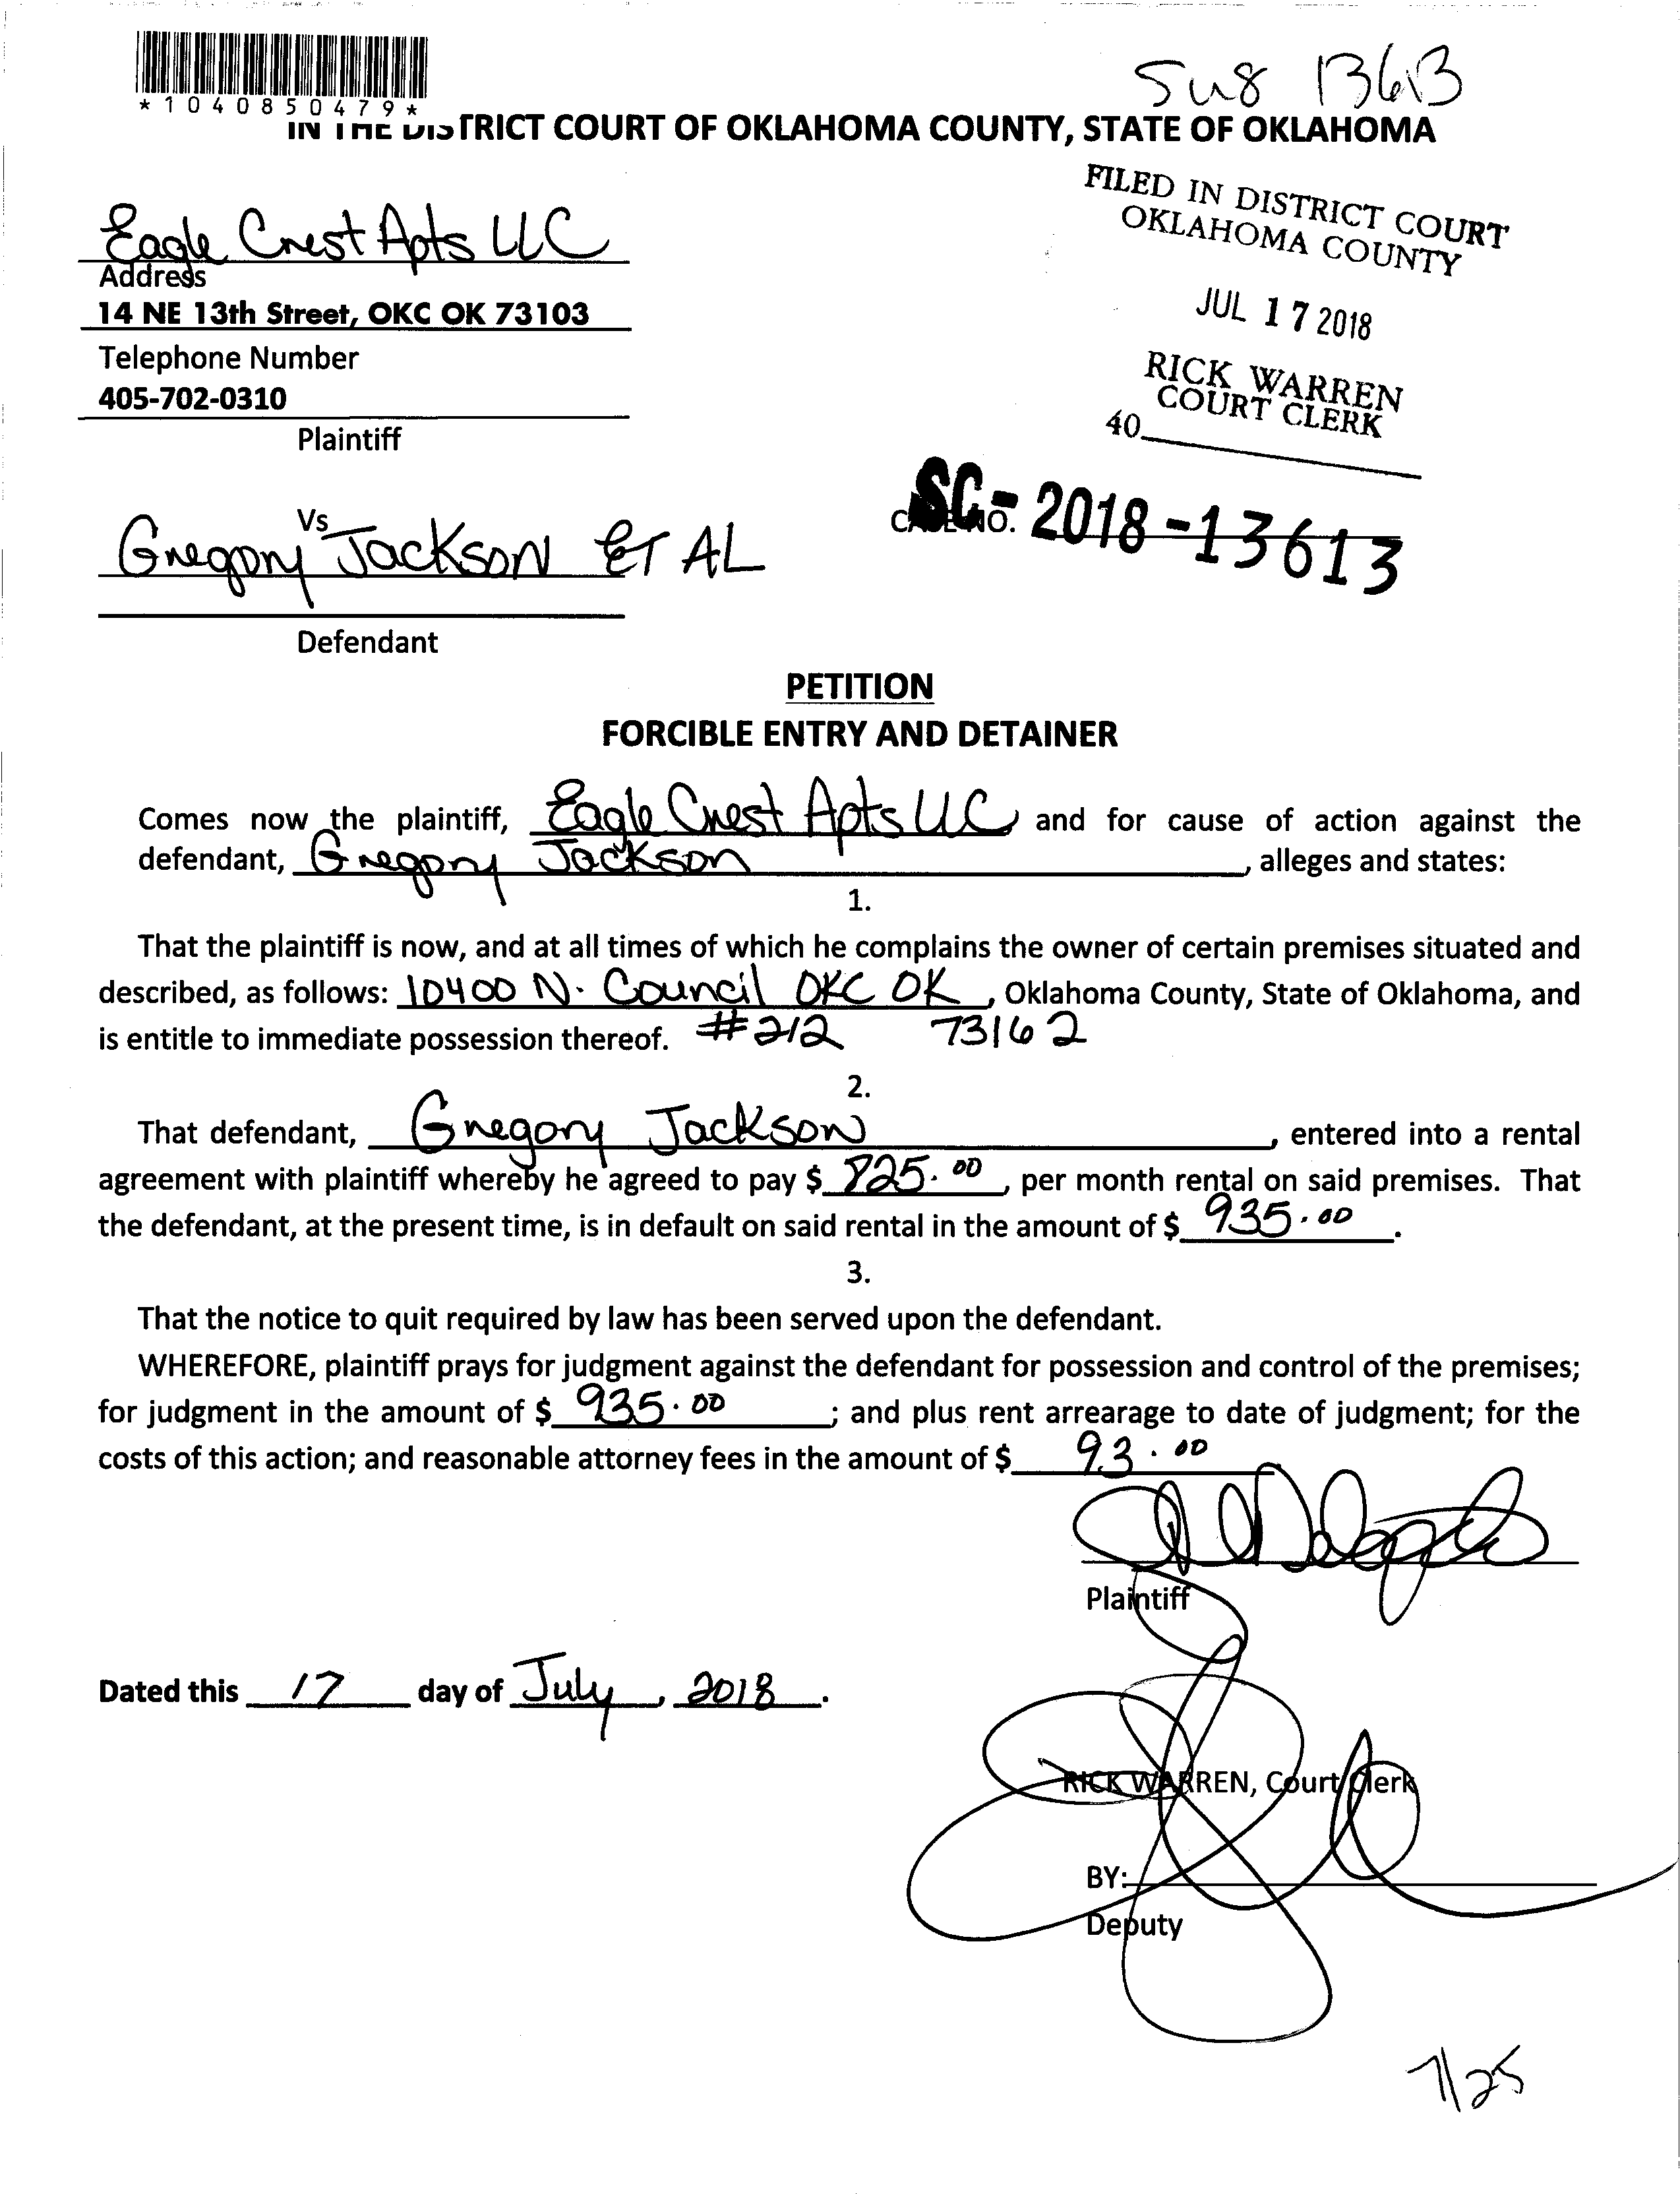 *1040850479*
IN THE DISTRICT COURT OF OKLAHOMA COUNTY, STATE OF OKLAHOMA
FILED IN DISTRICT COURT
OKLAHOMA COUNTY
JUL 17 2018
RICK WARREN
COURT CLERK
40
Eagle Crest Apts LLC
Address
14 NE 13th Street, OKC OK 73103
Telephone Number
405-702-0310
Plaintiff
Vs
SC-2018-13613
CASE NO.
Gregory Jackson ET AL
Defendant
PETITION
FORCIBLE ENTRY AND DETAINER
Comes now the plaintiff, Eagle Crest Apts LLC and for cause of action against the
defendant, Gregory Jackson, alleges and states:
1.
That the plaintiff is now, and at all times of which he complains the owner of certain premises situated and
described, as follows: 10400 N. Council OKC OK, Oklahoma County, State of Oklahoma, and
is entitle to immediate possession thereof. #212 73162
2.
That defendant, Gregory Jackson, entered into a rental
agreement with plaintiff whereby he agreed to pay $ 825.00, per month rental on said premises. That
the defendant, at the present time, is in default on said rental in the amount of $ 935.00.
3.
That the notice to quit required by law has been served upon the defendant.
WHEREFORE, plaintiff prays for judgment against the defendant for possession and control of the premises;
for judgment in the amount of $ 935.00; and plus rent arrearage to date of judgment; for the
costs of this action; and reasonable attorney fees in the amount of $ 93.00
Plaintiff
Dated this 17 day of July, 2018.
RICK WARREN, Court Clerk
BY:
Deputy
7/25